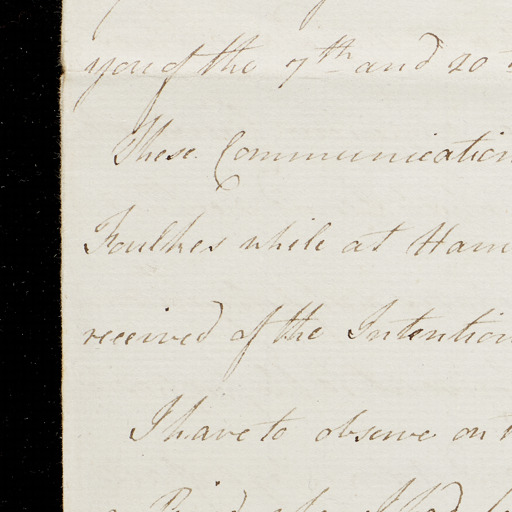 you of the 7th and 20
These Communication
Foulkes while at Ham
received of the Intention
I have to observe on